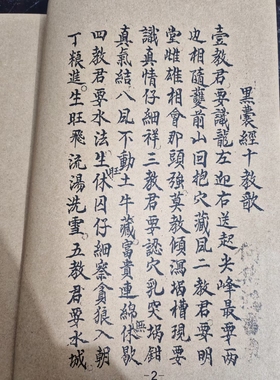 黑囊經十教歌
壹教君要識龍左迎右送起尖峰最要兩
边相隨護前山回抱穴藏風二教君要明
堂雌雄相會那頭強莫教傾瀉堝槽現要
識真情仔細祥三教君要認穴乳突堝鉗
真氣結八風不動土牛藏富貴連綿無休歇
四教君要水法生旺休囚仔細察貪狼入朝
丁粮進生旺飛流湯洗雪五教君要水城
-2-